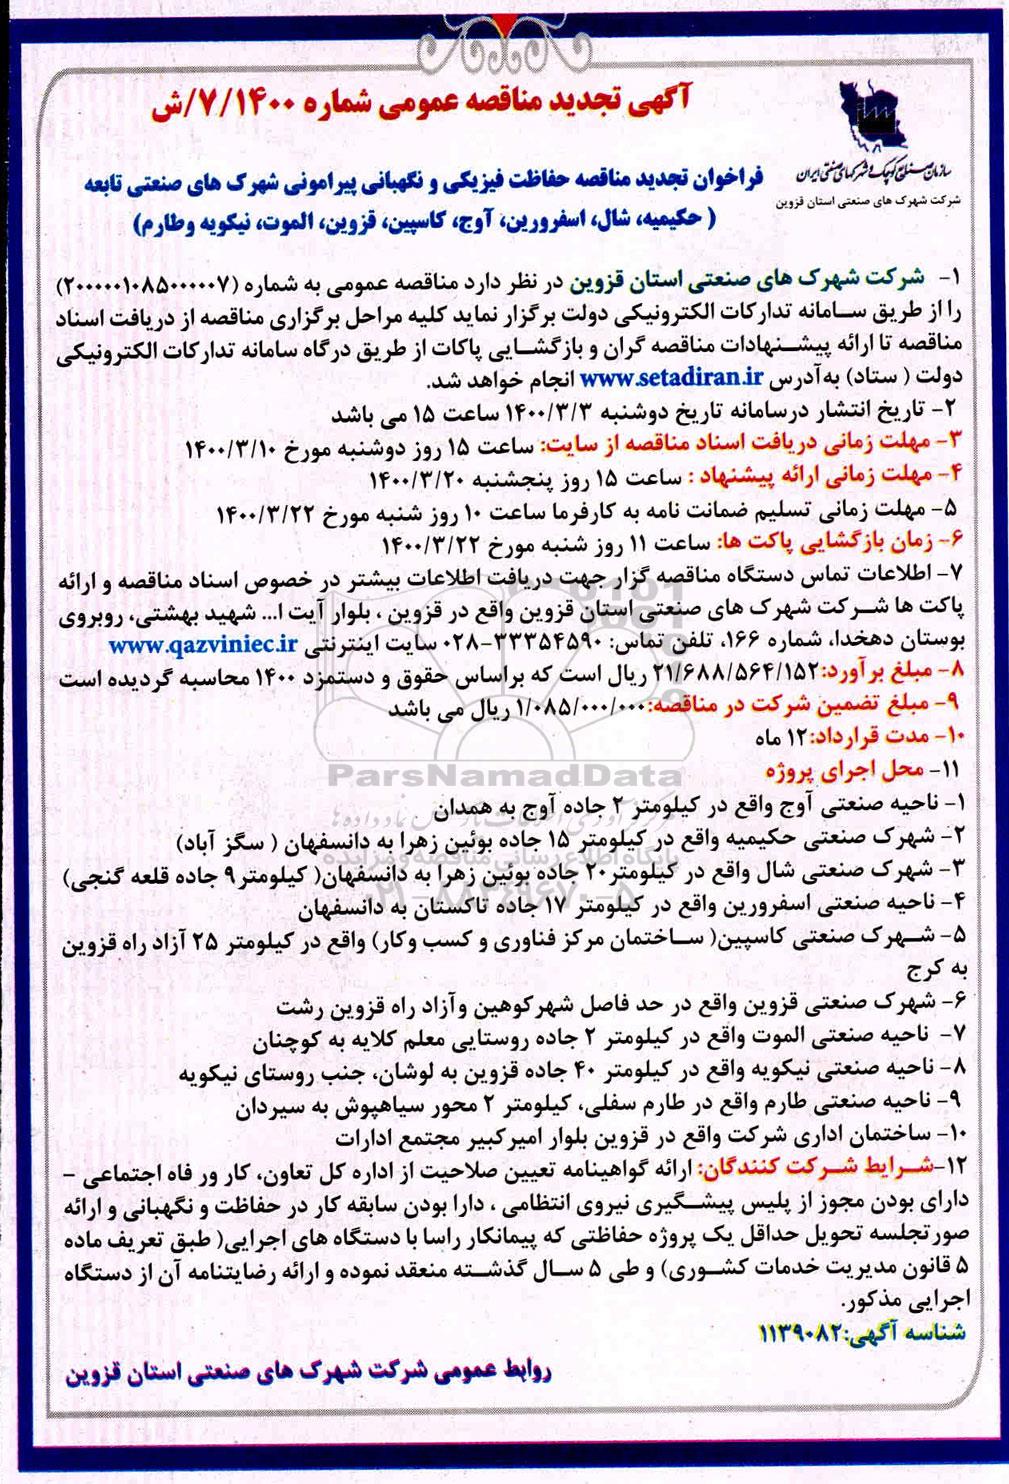 آگهی تجدید مناقصه عمومی شماره ۷/۱۴۰۰/ش
سازمان صنایع کوچک و شهرکهای صنعتی ایران
شرکت شهرک های صنعتی استان قزوین
فراخوان تجدید مناقصه حفاظت فیزیکی و نگهبانی پیرامونی شهرک های صنعتی تابعه
( حکیمیه، شال، اسفرورین، آوج، کاسپین، قزوین، الموت، نیکویه وطارم)
۱- شرکت شهرک های صنعتی استان قزوین در نظر دارد مناقصه عمومی به شماره (۲۰۰۰۰۰۱۰۸۵۰۰۰۰۰۷)
را از طریق سامانه تدارکات الکترونیکی دولت برگزار نماید کلیه مراحل برگزاری مناقصه از دریافت اسناد
مناقصه تا ارائه پیشنهادات مناقصه گران و بازگشایی پاکات از طریق درگاه سامانه تدارکات الکترونیکی
دولت ( ستاد) به‌آدرس www.setadiran.ir انجام خواهد شد.
۲- تاریخ انتشار درسامانه تاریخ دوشنبه ۱۴۰۰/۳/۳ ساعت ۱۵ می باشد
۳- مهلت زمانی دریافت اسناد مناقصه از سایت: ساعت ۱۵ روز دوشنبه مورخ ۱۴۰۰/۳/۱۰
۴- مهلت زمانی ارائه پیشنهاد : ساعت ۱۵ روز پنجشنبه ۱۴۰۰/۳/۲۰
۵- مهلت زمانی تسلیم ضمانت نامه به کارفرما ساعت ۱۰ روز شنبه مورخ ۱۴۰۰/۳/۲۲
۶- زمان بازگشایی پاکت ها: ساعت ۱۱ روز شنبه مورخ ۱۴۰۰/۳/۲۲
۷- اطلاعات تماس دستگاه مناقصه گزار جهت دریافت اطلاعات بیشتر در خصوص اسناد مناقصه و ارائه
پاکت ها شرکت شهرک های صنعتی استان قزوین واقع در قزوین ، بلوار آیت ا... شهید بهشتی، روبروی
بوستان دهخدا، شماره ۱۶۶، تلفن تماس: ۳۳۳۵۴۵۹۰-۰۲۸ سایت اینترنتی www.qazviniec.ir
۸- مبلغ برآورد:۲۱/۶۸۸/۵۶۴/۱۵۲ ریال است که براساس حقوق و دستمزد ۱۴۰۰ محاسبه گردیده است
۹- مبلغ تضمین شرکت در مناقصه:۱/۰۸۵/۰۰۰/۰۰۰ ریال می باشد
۱۰- مدت قرارداد:۱۲ ماه
ParsNamadData
۱۱- محل اجرای پروژه
۱- ناحیه صنعتی آوج واقع در کیلومتر ۲ جاده آوج به همدان
۲- شهرک صنعتی حکیمیه واقع در کیلومتر ۱۵ جاده بوئین زهرا به دانسفهان ( سگز آباد)
پایگاه اطلاع رسانی مناقصه و مزایده
۳- شهرک صنعتی شال واقع در کیلومتر۲۰ جاده بوئین زهرا به دانسفهان( کیلومتر۹ جاده قلعه گنجی)
۰۲۱-۸۸۳۴۹۶۷۰-۵
۴- ناحیه صنعتی اسفرورین واقع در کیلومتر ۱۷ جاده تاکستان به دانسفهان
۵- شهرک صنعتی کاسپین( ساختمان مرکز فناوری و کسب وکار) واقع در کیلومتر ۲۵ آزاد راه قزوین
به کرج
۶- شهرک صنعتی قزوین واقع در حد فاصل شهرکوهین وآزاد راه قزوین رشت
۷- ناحیه صنعتی الموت واقع در کیلومتر ۲ جاده روستایی معلم کلایه به کوچنان
۸- ناحیه صنعتی نیکویه واقع در کیلومتر ۴۰ جاده قزوین به لوشان، جنب روستای نیکویه
۹- ناحیه صنعتی طارم واقع در طارم سفلی، کیلومتر ۲ محور سیاهپوش به سیردان
۱۰- ساختمان اداری شرکت واقع در قزوین بلوار امیرکبیر مجتمع ادارات
۱۲-شرایط شرکت کنندگان: ارائه گواهینامه تعیین صلاحیت از اداره کل تعاون، کار ور فاه اجتماعی –
دارای بودن مجوز از پلیس پیشگیری نیروی انتظامی ، دارا بودن سابقه کار در حفاظت و نگهبانی و ارائه
صورتجلسه تحویل حداقل یک پروژه حفاظتی که پیمانکار راسا با دستگاه های اجرایی( طبق تعریف ماده
۵ قانون مدیریت خدمات کشوری) و طی ۵ سال گذشته منعقد نموده و ارائه رضایتنامه آن از دستگاه
اجرایی مذکور.
شناسه آگهی:۱۱۳۹۰۸۲
روابط عمومی شرکت شهرک های صنعتی استان قزوین